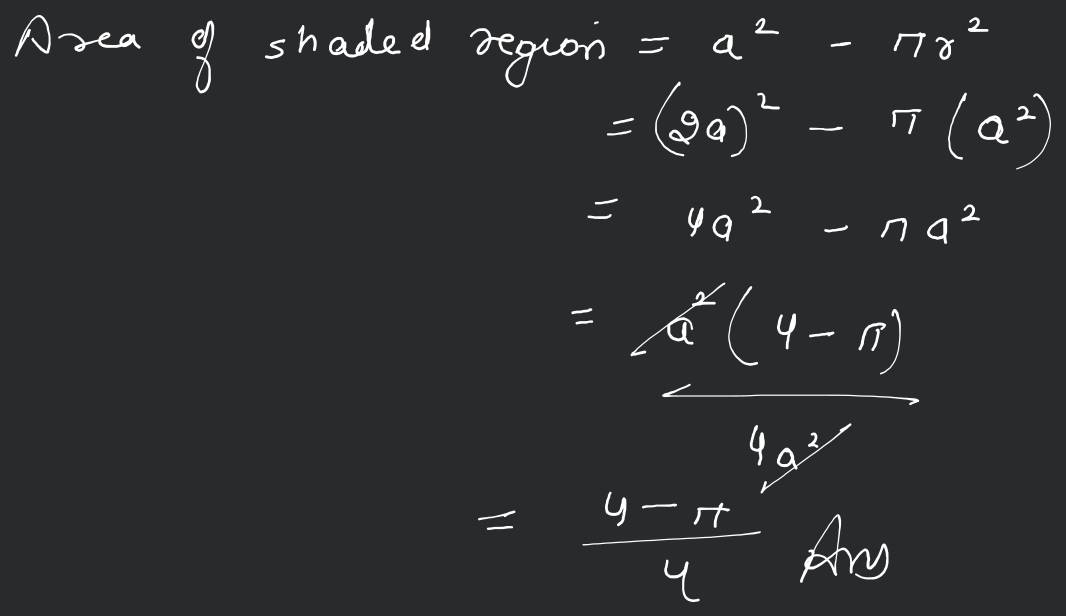 Area of shaded region = a² - πr²
= (2a)² - π(a²)
= 4a² - πa²
= a²(4 - π)
4a²
= 4 - π
4 Ans